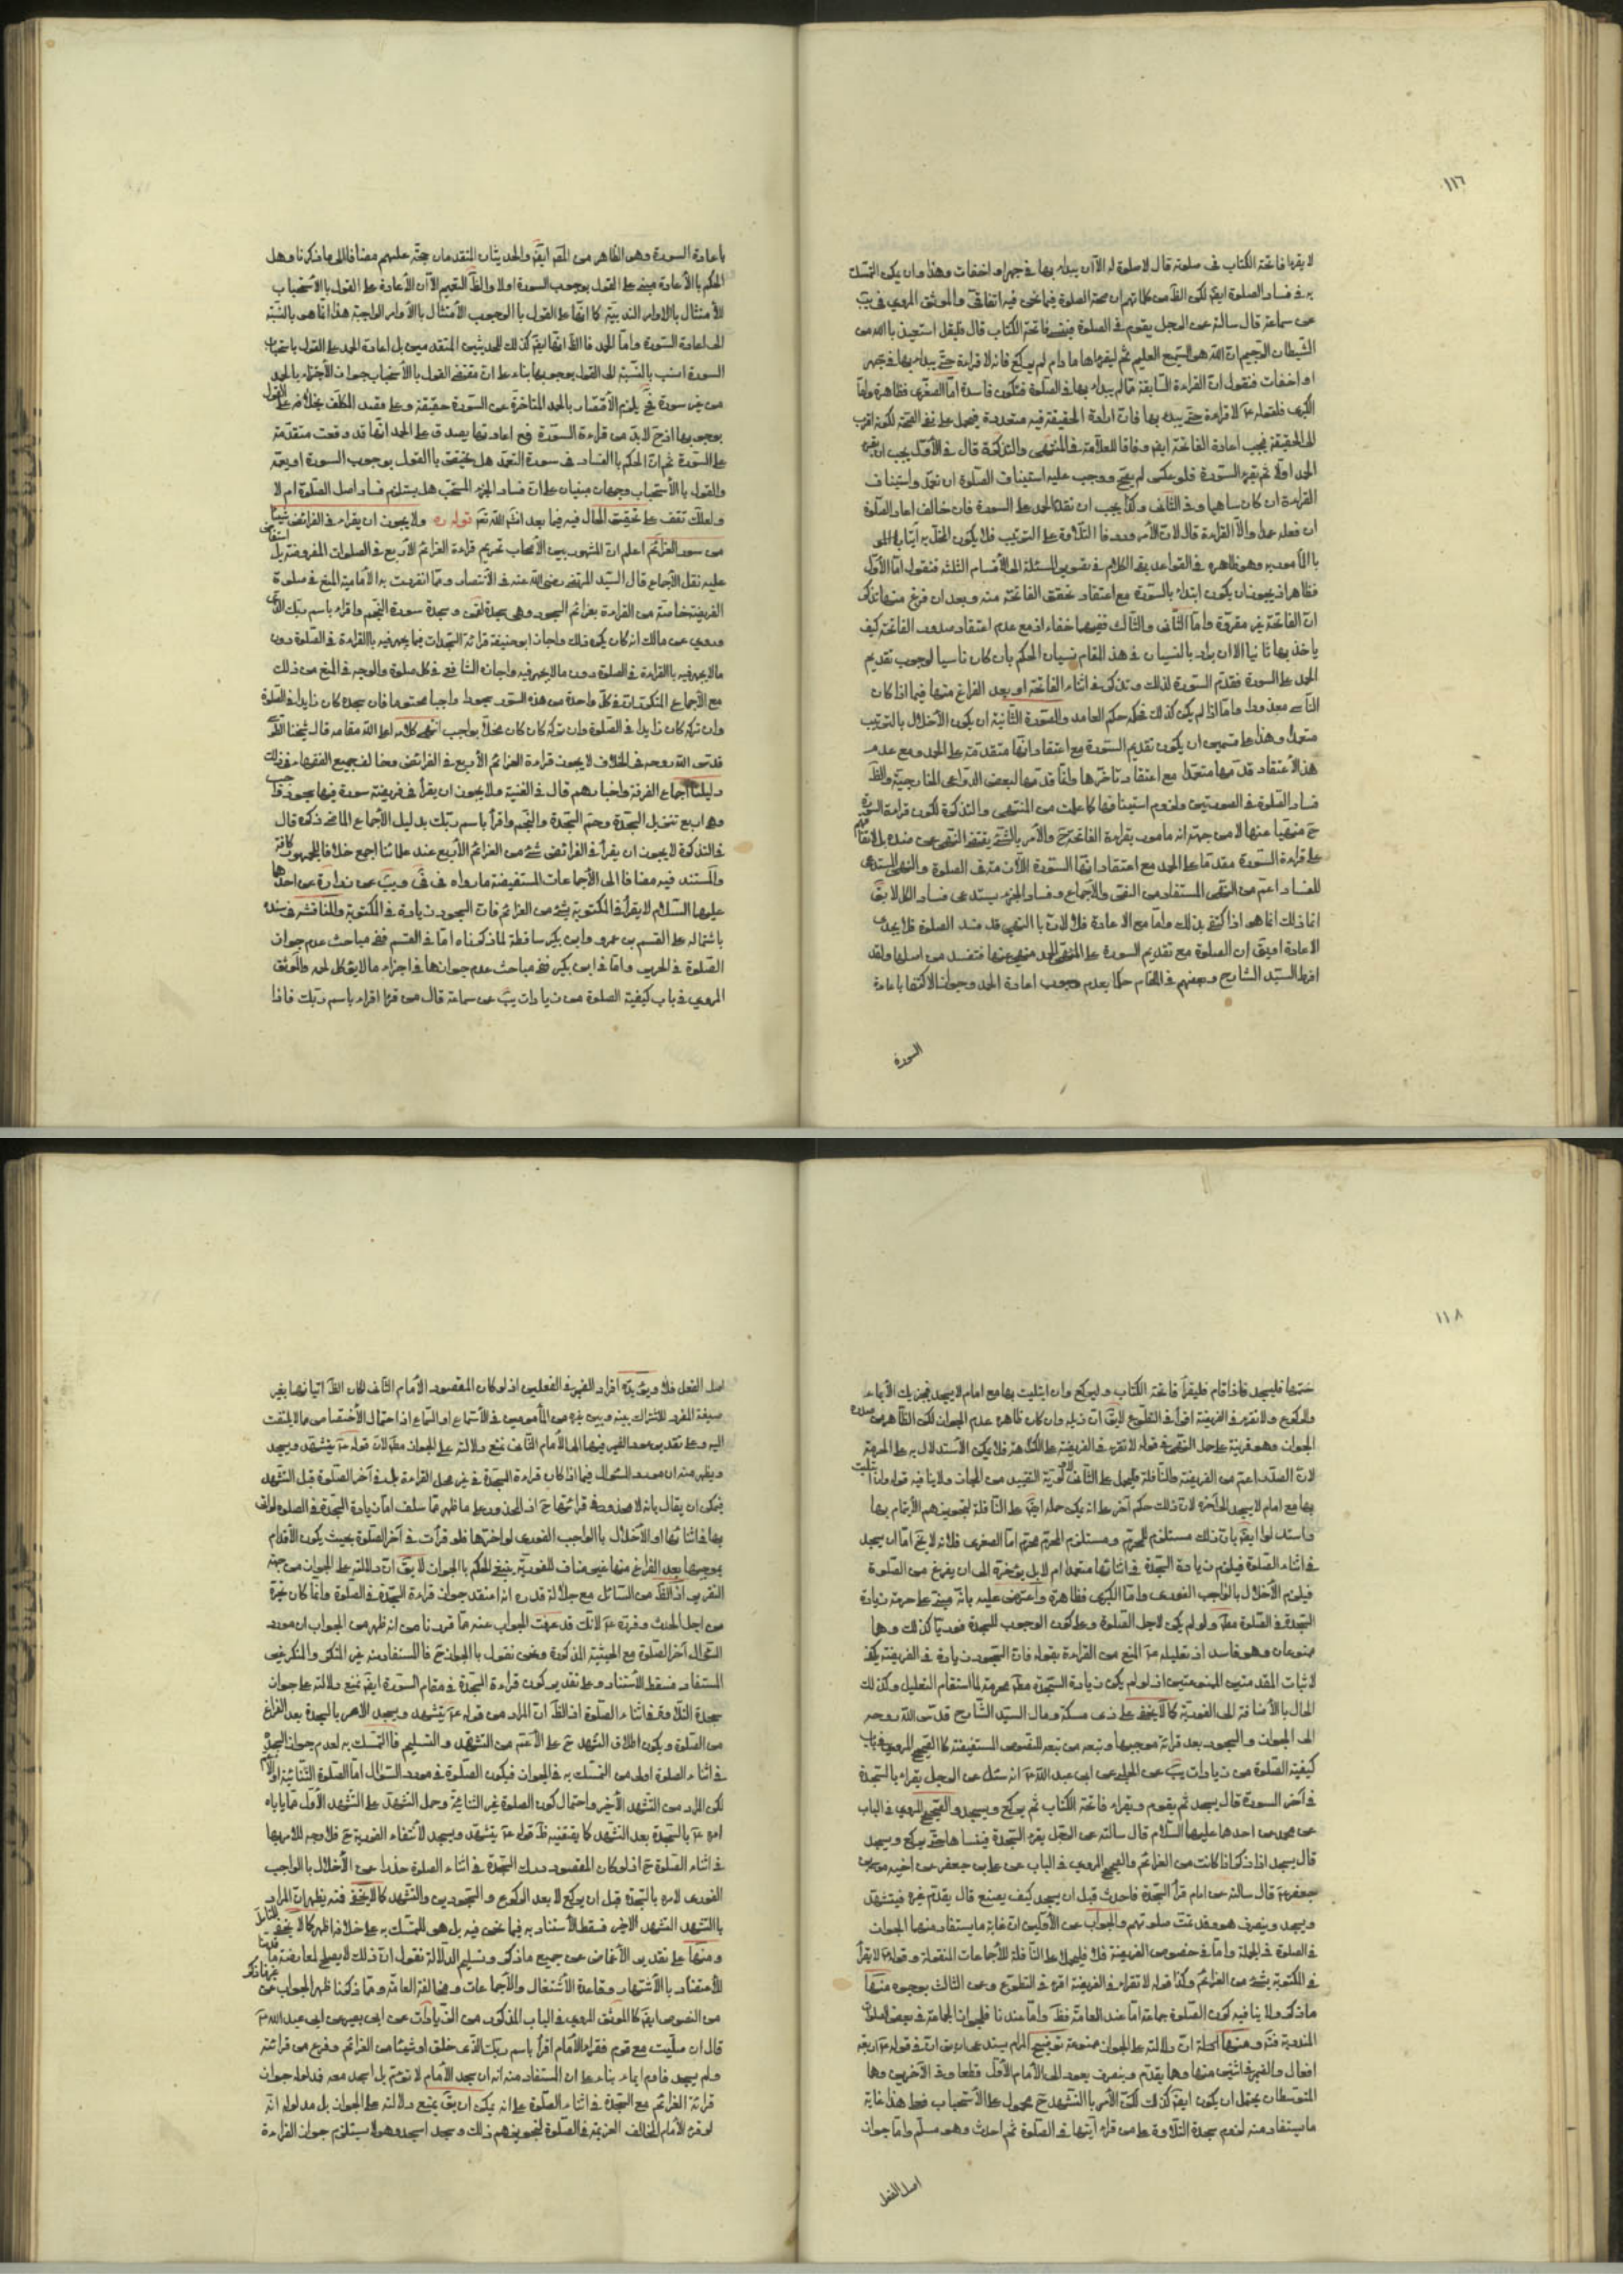 ١١٦
لا يقرا فاتحة الكتاب في صلوته قال لا صلوة له الا ان يبدء بها في جهر او اخفات وهذا وان يكن التمسّك
به في فساد الصلوة ايضا لكن الظ من كلا تهم ان صحة الصلوة فيما نحن فيه اتفاقى والموثق المروى في يب
عن سماعة قال سالته عن الرجل يقوم في الصلوة فينسى فاتحة الكتاب قال فليقل استعيذ بالله من
الشيطان الرجيم انّ الله هو السّميع العليم ثم ليقراها ما دام لم يركع فانه لا قراءة حتّى يبداء بها في جهر
او اخفات فنقول انّ القراءة السّابقة ما لم يبداء بها في الصلوة فتكون فاسدة امّا الصغرى فظاهرة وامّا
الكبرى فلقوله ع لا قراءة حتى يبدء بها فان ارادة الحقيقة فيه متعذرة فيحمل على نفى الصّحة لكونه اقرب
الى الحقيقة فيجب اعادة الفاتحة ايض وفاقا للعلّامة في المنتهى والتذكرة قال في الأوّل يجب ان يقرء
الحمد اولا ثم يقرء السّورة فلو عكس لم يصح ووجب عليه استيناف الصلوة ان تعمّد واستيناف
القراءة ان كان ساهيا وفى الثّانى وكذا يجب ان تقدّم الحمد على السورة فان خالف اعاد الصّلوة
ان فعله عمدا والّا القراءة قال لانّ الامر ورد التلاوة على الترتيب فلا يكون المخلّ به آتيا
بالمأمور به وهو ظاهره في القواعد بقى الكلام في تصوير المسئلة الى الأقسام الثلثة فنقول امّا الأوّل
فظاهر اذ يجوز ان يكون ابتداء بالسّورة مع اعتقاد تحقق الفاتحة منه وبعد ان فرغ منها تذكر
انّ الفاتحة غير مقروّة وامّا الثّانى والثّالث ففيهما خفاء اذ مع عدم اعتقاد صدور الفاتحة كيف
ياخذ بها ثانيا الا ان يراد بالنّسيان في هذ المقام نسيان الحكم بان كان ناسيا لوجوب تقديم
الحمد على السورة فقدّم السّورة لذلك وتذكّر في اثناء الفاتحة او بعد الفراغ منها فيما اذا كان
النّاسى معذورا وامّا اذا لم يكن كذلك فحكمه حكم العامد والصّورة الثّانية ان يكون الأخلال بالتّرتيب
متعمّدا وهذا على قسمين ان يكون تقديم السّورة مع اعتقاد انّها متقدمة على الحمد ومع عدم
هذ الأعتقاد قدّمها متعمّدا مع اعتقاد تأخّرها وانّما قدّمها لبعض الدّواعى الخارجيّة والظّ
فساد الصّلوة في الصورتين ولزوم استينافها كما علمت من المنتهى والتذكرة لكون قراءة السّورة
ح منهيا عنها لا من جهة انه مامور بقراءة الفاتحة ح والأمر بالشّئ يقتضى النّهى عن ضدّه بل
على قراءة السّورة مقدّما على الحمد مع اعتقاد انّها السّورة الآن منهى في الصلوة والنهى المستدعى
للفساد اعمّ من النّهى المستفاد من النّص والأجماع وفساد الجزء يستدعى فساد الكل لا يق
انّما ذلك انّما هو اذا اكتفى بذلك وامّا مع الاعادة فلا لانّ بالنّهى قد فسد الصلوة فلا يجدى
الاعادة او يق ان الصلوة مع تقديم السورة على الحمد منهى عنها فتفسد من اصلها ولقد
افرط السيّد الشّارح وبعضهم في المقام حكما بعدم وجوب اعادة الحمد وجواز الاكتفاء باعادة
السورة
باعادة السورة وهو الظّاهر من المتن ايض والحديثان المتقدمان حجّة عليهم مضافا الى ما ذكرنا وهل
الحكم بالأعادة مبنى على القول بوجوب السورة اولا والظّ التعميم الّا ان الأعادة على القول بالأستحباب
للأمتثال بالاوامر الندبيّة كما انّها على القول بالوجوب الأمتثال بالأوامر الواجبة هذا انّما هو بالنّسبة
الى اعادة السّورة وامّا الحمد فالظّ انّها ايض كذلك للحديثين المتقدمين بل اعادة الحمد على القول باستحباب
السورة انسب بالنّسبة الى القول بوجوبها بناء على انّ مقتضى القول بالأستحباب جواز الأجتزاء بالحمد
من غير سورة فح يلزم الأقتصار بالحمد المتاخّرة عن السّورة حقيقة وعلى مقصد المكلّف بخلافه على القول
بوجوبها اذ ح لا بدّ من قراءة السّورة فمع اعادتها يصدق على الحمد انّها قد وقعت متقدّمة
على السّورة ثم انّ الحكم بالفساد في صورة التعمّد هل يختصّ بالقول بوجوب السورة او يعمّه
والقول بالأستحباب وجهان مبنيان على انّ فساد الجزء المستحب هل يستلزم فساد اصل الصّلوة ام لا
ولعلّك تقف على تحقيق الحال فيه فيما بعد انشاء الله تعم قوله ره ولا يجوز ان يقراء في الفرائض شيئا
من سور العزائم اعلم انّ المشهور بين الأصحاب تحريم قراءة العزائم الأربع في الصلوات المفروضة بل استفاض
عليه نقل الأجماع قال السّيّد المرتضى رضى الله عنه في الأنتصار وممّا انفردت به الأماميّة المنع في صلوة
الفريضة خاصّة من القراءة بعزائم السجود وهى سجدة لقمن وسجدة سورة النّجم واقراء باسم ربّك الّذى
وروى عن مالك انه كان يكره ذلك واجاز ابو حنيفة قراءة السّجدات فيما يجهر فيه بالقراءة في الصّلوة دون
مالا يجهر فيه بالقراءة في الصلوة دون مالا يجهر فيه واجاز الشّافعى في كل صلوة والوجه في المنع من ذلك
مع الأجماع المتكرّر انّ في كلّ واحدة من هذه السّور سجودا واجبا محتوما فان سجده كان زايدا في الصلوة
وان تركه كان زايدا في الصّلوة وان تركه كان كان مخلّا بواجب انتهى كلامه اعلى الله مقامه قال شيخنا الطّوسى
قدّس الله روحه في الخلاف لا يجوز قراءة العزائم الأربع في الفرائض وخالف جميع الفقهاء في ذلك
دليلنا اجماع الفرقة واخبارهم قال في الغنية ولا يجوز ان يقرأ في فريضة سورة فيها سجود واجب
وهى اربع تنزيل السّجدة وحم السّجدة والنّجم واقرأ باسم ربّك بدليل الأجماع الماضى ذكره قال
في التذكرة لا يجوز ان يقرأ في الفرائض شئ من العزائم الأربع عند علمائنا اجمع خلافا للجمهور كافة
والمستند فيه مضافا الى الأجماعات المستفيضة ما رواه في فى ويب عن زرارة عن احدهما
عليهما السّلام لا يقرأ في المكتوبة بشئ من العزائم فانّ السجود زيادة في المكتوبة والمناقشة في سنده
باشتماله على القسم بن عمرو وابن بكير ساقطة لما ذكرناه امّا في القسم ففى مباحث عدم جواز
الصّلوة في الحرير وامّا في ابن بكير ففى مباحث عدم جوازها في اجزاء ما لا يؤكل لحمه والموثق
المروى في باب كيفية الصلوة من زيادات يب عن سماعة قال من قرأ اقراء باسم ربّك فاذا
١١٨
ختمها فليسجد فاذا قام فليقرأ فاتحة الكتاب وليركع وان ابتليت بها مع امام لا يسجد فيجزيك الأيماء
والركوع ولا تقرء في الفريضة اقرأ في التطوّع لا يق انّ ذيله وان كان ظاهره عدم الجواز لكن الظّاهر من صدره
الجواز وهو قرينة على حمل النّهى في قوله لا تقرء في الفريضة على الكراهة فلا يمكن الأستدلال به على الحرمة
لانّ الصّدر اعمّ من الفريضة والنّافلة فليحمل على الثّانى لقرينة التقييد من الجهات ولا ينافيه قوله وان ابتليت
بها مع امام لا يسجد الى آخره لانّ ذلك حكم آخر على انه يمكن حمله ايض على النّافلة لتجويزهم الأيتمام بها
واستدلوا ايض بانّ ذلك مستلزم للمحرّم ومستلزم المحرّم محرّم امّا الصغرى فلانه لا يخ امّا ان يسجد
في اثناء الصّلوة فيلزم زيادة السّجدة في اثنائها متعمدا ام لا بل يؤخّره الى ان يفرغ من الصّلوة
فيلزم الأخلال بالواجب الفورى وامّا الكبرى فظاهرة واعترض عليه بانّه مبنى على حرمة زيادة
السّجدة في الصّلوة مطّ ولو لم يكن لاجل الصّلوة وعلى كون الوجوب للسجدة فوريا كذلك وهما
ممنوعان وهو فاسد اذ تعليله ع المنع من القراءة بقوله فانّ السّجود زيادة في الفريضة يكفى
لاثبات المقدمتين الممنوعتين اذ لو لم يكن زيادة السّجدة مطّ محرمة لما استقام التعليل وكذلك
الحال بالأضافة الى الفوريّة كما لا يخفى على ذى مسكة ومال السيّد الشّارح قدّس الله روحه
الى الجواز والسجود بعد قراءة موجبها وتبعه من تبعه للنّصوص المستفيضة كالصّحيح المروى في باب
كيفية الصّلوة من زيادات يب عن الحلبى عن ابى عبد الله ع انه سئل عن الرجل يقراء بالسّجدة
في آخر السّورة قال يسجد ثم يقوم ويقراء فاتحة الكتاب ثم يركع ويسجد والصّحيح المروى في الباب
عن محمد عن احدهما عليهما السّلام قال سالته عن الرّجل يقرء السّجدة فينساها حتّى يركع ويسجد
قال يسجد اذا ذكر اذا كانت من العزائم والصّحيح المروى في الباب عن على بن جعفر عن اخيه موسى بن
جعفر ع قال سالته عن امام قرأ السّجدة فاحدث قبل ان يسجد كيف يصنع قال يقدّم غيره فيتشهّد
ويسجد وينصرف هو وقد تمّت صلوتهم والجواب عن الأوّلين انّ غاية ما يستفاد منها الجواز
في الصلوة في الجملة وامّا في خصوص الفريضة فلا فليحمل على النّافلة للأجماعات المنقولة وقوله ع لا يقرأ
في المكتوبة بشئ من العزائم وكذا قوله لا تقراء في الفريضة اقره في التطوّع وعن الثالث بوجوه منها
ما ذكر ولا ينافيه كون الصّلوة جماعة امّا عند العامّة فظّ وامّا عندنا فلجواز الجماعة في بعض الصلوات
المندوبة فتّ ومنها الجملة انّ دلالته على الجواز ممنوعة توضيح المرام يستدعى ان يق انّ في قوله ع اربعة
افعال والضمير في اثنين منها وهما يقدّم وينصرف يعود الى الامام الأوّل قطعا وفى الآخرين وهما
المتوسّطان يحتمل ان يكون ايض كذلك لكنّ الأمر بالتّشهد ح محمول على الأستحباب فعلى هذا غاية
ما يستفاد منه لزوم سجدة التلاوة على من قراء آيتها في الصّلوة ثم احدث وهو مسلّم وامّا جواز
اصل الفعل
اصل الفعل فلا ويؤيّده افراد الضمير في الفعلين اذ لو كان المقصود الأمام الثّانى لكان الظّ اتيانها بغير
صيغة المفرد للاشتراك بينه وبين غيره من المأمومين في الأستماع او السّماع اذ احتمال الأختصاص مما لا يلتفت
اليه وعلى تقدير عود الضّمير فيهما الى الأمام الثّانى نمنع دلالته على الجواز مطّ لانّ قوله ع يتشهّد ويسجد
ويظهر منه ان مورد السّؤال فيما اذا كان قراءة السّجدة في غير محل القراءة بل في آخر الصّلوة قبل التشهّد
يمكن ان يقال بانه لا محذور في قرائتها ح اذ المحذور على ما ظهر ممّا سلف امّا زيادة السّجدة في الصلوة لو اتى
بها في اثنائها او الأخلال بالواجب الفورى لو اخّرها فلو قرأت في آخر الصّلوة بحيث يكون الأقدام
بموجبها بعد الفراغ منها غير مناف للفوريّة ينبغى الحكم بالجواز لا يق انّ دلالته على الجواز من جهة
التقرير اذ الظّ من السّائل مع جلالة قدره انه اعتقد جواز قراءة السّجدة في الصّلوة وانّما كان تحيّره
من اجل الحدث وقرّره ع لانّك قد عرفت الجواب عنه ممّا قررنا من انه ظهر من الجواب ان مورد
السّؤال آخر الصّلوة مع الحيثية المذكورة ونحن نقول بالجواز ح فالمستفاد منه غير المنكر والمنكر غير
المستفاد فسقط الأستناد وعلى تقدير كون قراءة السّجدة في مقام السّورة ايض نمنع دلالته على جواز
سجدة التلاوة في اثناء الصّلوة اذ الظّ انّ المراد من قوله ع يتشهّد ويسجد الامر بالسجدة بعد الفراغ
من الصّلوة ويكون اطلاق التّشهد ح على الأعمّ من التّشهّد والتّسليم فالتمسّك به لعدم جواز السّجدة
في اثناء الصلوة اولى من التمسّك به في الجواز فيكون الصّلوة في مورد السّؤال امّا الصّلوة الثّنائيّة او الأعم
لكن المراد من التّشهد الأخير واحتمال كون الصلوة غير الثنائيّة وحمل التّشهّد على التّشهّد الأوّل ممّا ياباه
امره ع بالسّجدة بعد التّشهد كما يقتضيه ظّ قوله ع يتشهّد ويسجد لأنتفاء الفوريّة ح فلا وجه للامر بها
في اثناء الصّلوة ح اذ لو كان المقصود درك السّجدة في اثناء الصلوة حذرا عن الأخلال بالواجب
الفورى لامره بالسّجدة قبل ان يركع لا بعد الركوع والسّجودين والتّشهد كما لا يخفى فمنه يظهر انّ المراد
بالتّشهد التّشهد الأخير فسقط الأستناد به فيما نحن فيه بل هو للتمسّك به على خلافه اظهر كما لا يخفى للمتأمّل
ومنها على تقدير الأغماض عن جميع ما ذكر وتسليم الدلالة نقول انّ ذلك لا يصلح لمعارضة ما قدّمنا
للأعتضاد بالأشتهار وقاعدة الأشتغال والأجماعات ومخالفة العامّة وممّا ذكرنا ظهر الجواب عن غير ما ذكر
من النصوص ايض كالموثق المروى في الباب المذكور من الزّيادات عن ابى بصير عن ابى عبد الله ع
قال ان صلّيت مع قوم فقراء الأمام اقرأ باسم ربّك الّذى خلق او شيئا من العزائم وفرغ من قرائته
ولم يسجد فاوم ايماء بناء على ان المستفاد منه انه ان سجد الأمام لا تؤم بل اسجد معه فدلوله جواز
قراءة العزائم مع السّجدة في اثناء الصّلوة على انه يمكن ان يق نمنع دلالته على الجواز بل مدلوله انّه
لو قرء الأمام المخالف العزيمة في الصّلوة لتجويزهم ذلك وسجد اسجد وهو لا يستلزم جواز القراءة